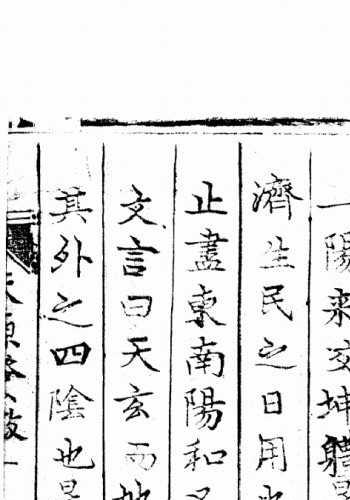 一陽来交坤體
濟生民之日用也
止盡東南陽和
文言曰天玄而地
其外之四陰也